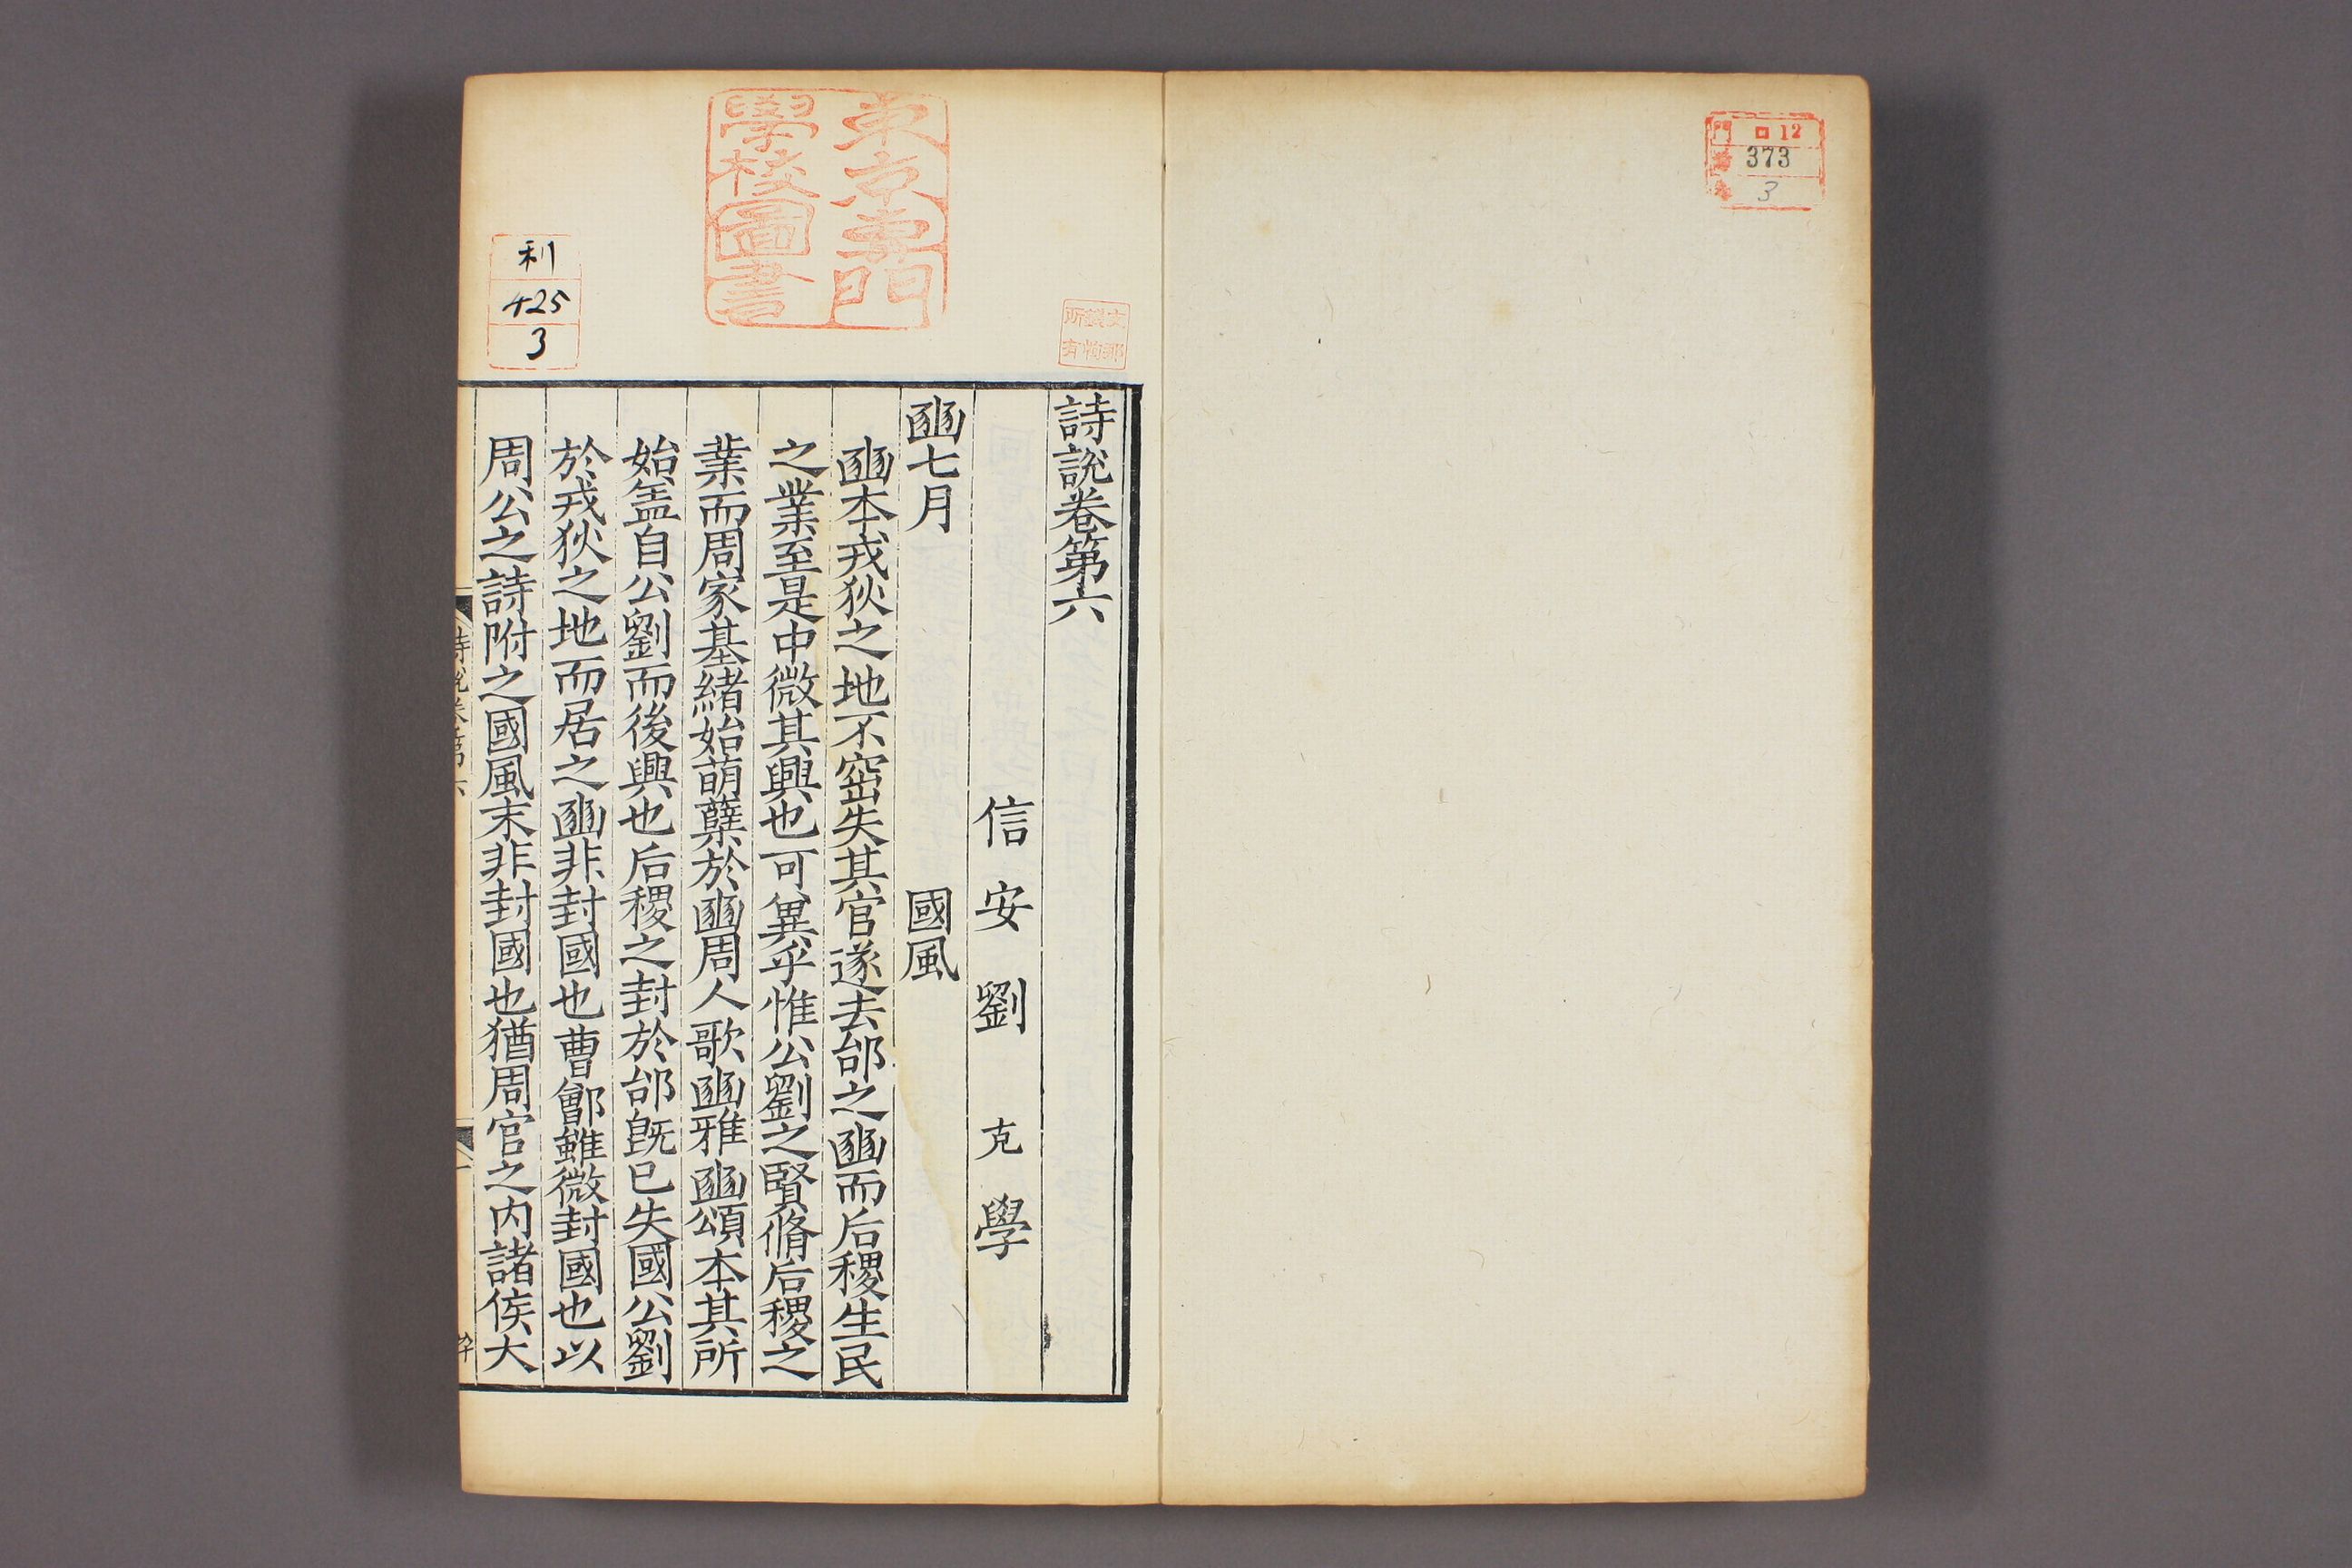 門 ロ12
號 373
卷 3
東京專門
學校圖書
文部
省物
所有
利
425
3
詩說卷第六
信安劉克學
豳七月 國風
豳本戎狄之地不窋失其官遂去邰之豳而后稷生民
之業至是中微其興也可異乎惟公劉之賢脩后稷之
業而周家基緒始萌蘖於豳周人歌豳雅豳頌本其所
始盖自公劉而後興也后稷之封於邰旣已失國公劉
於戎狄之地而居之豳非封國也曹鄶雖微封國也以
周公之詩附之國風末非封國也猶周官之内諸侯大
詩說卷第六